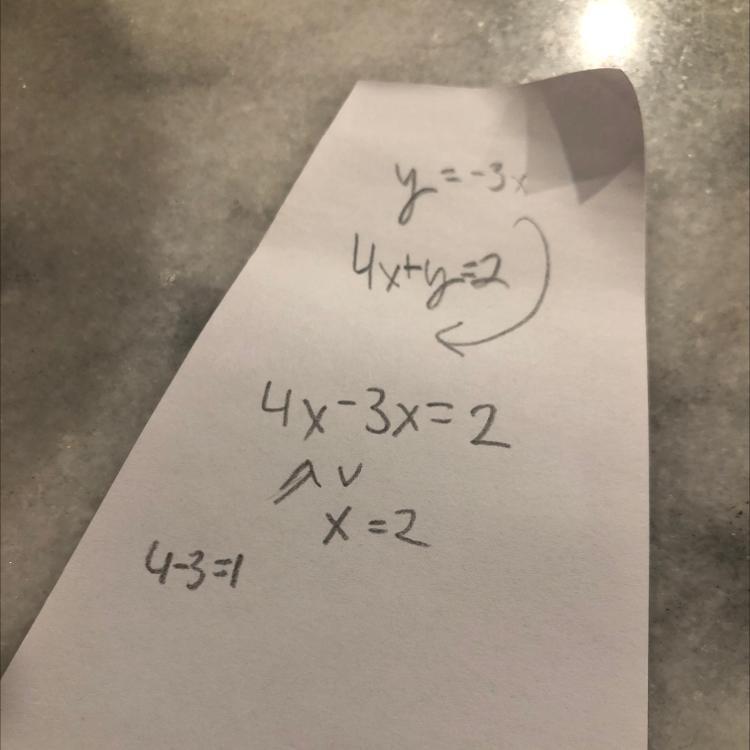 y = -3x
4x+y=2
4x-3x=2
x=2
4-3=1